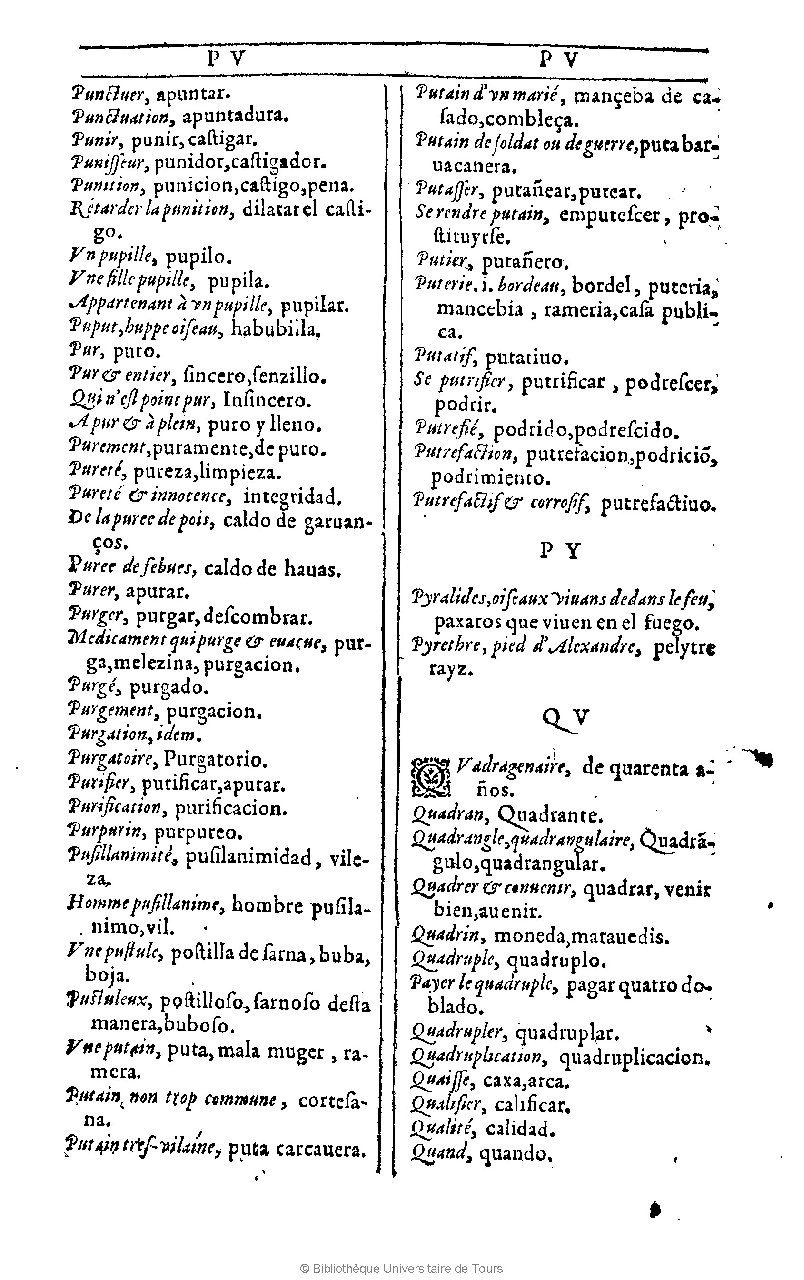 P V
Punctuer, apuntar.
Punctuation, apuntadura.
Punir, punir, caſtigar.
Puniſſeur, punidor,caſtigador.
Punition, punicion,caſtigo,pena.
Retarder la punition, dilatar el caſti-
go.
Vn pupille, pupilo.
Vne fille pupille, pupila.
Appartenant à vn pupille, pupilar.
Puput,huppe oiſeau, habubilla.
Pur, puro.
Pur & entier, ſincero,ſenzillo.
Qui n'eſt point pur, Inſincero.
A pur & à plein, puro y lleno.
Purement,puramente,de puro.
Pureté, pureza,limpieza.
Pureté & innocence, integridad.
De la puree de pois, caldo de garuan-
ços.
Puree de febues, caldo de hauas.
Purer, apurar.
Purger, purgar,deſcombrar.
Medicament qui purge & euacue, pur-
ga,melezina, purgacion.
Purgé, purgado.
Purgement, purgacion.
Purgation, idem.
Purgatoire, Purgatorio.
Purifier, purificar,apurar.
Purification, purificacion.
Purpurin, purpureo.
Puſillanimité, puſilanimidad, vile-
za.
Homme puſillanime, hombre puſila-
nimo,vil.
Vne puſtule, poſtilla de ſarna, buba,
boja.
Puſtuleux, poſtilloſo, ſarnoſo deſta
manera,buboſo.
Vne putain, puta, mala muger, ra-
mera.
Putain non trop commune, corteſa-
na.
Putain treſ-vilaine, puta carcauera.
P V
Putain d'vn marié, mançeba de ca-
ſado,combleça.
Putain de ſoldat ou de guerre,puta bar-
uacanera.
Putaſſer, putañear,putear.
Se rendre putain, emputeſcer, pro-
ſtituyrſe.
Putier, putañero.
Puterie. i. bordeau, bordel, puteria,
mancebia, rameria,caſa publi-
ca.
Putatif, putatiuo.
Se putrifier, putrificar, podreſcer,
podrir.
Putrefié, podrido,podreſcido.
Putrefaction, putrefacion,podriciõ,
podrimiento.
Putrefactif & corroſif, putrefactiuo.
P Y
Pyralides,oiſeaux viuans dedans le feu,
paxaros que viuen en el fuego.
Pyrethre, pied d'Alexandre, pelytre
rayz.
Q V
QVadragenaire, de quarenta a-
ños.
Quadran, Quadrante.
Quadrangle,quadrangulaire, Quadrã-
gulo,quadrangular.
Quadrer & conuenir, quadrar, venir
bien,auenir.
Quadrin, moneda,marauedis.
Quadruple, quadruplo.
Payer le quadruple, pagar quatro do-
blado.
Quadrupler, quadruplar.
Quadruplication, quadruplicacion.
Quaiſſe, caxa,arca.
Qualifier, calificar.
Qualité, calidad.
Quand, quando.
© Bibliothèque Universitaire de Tours